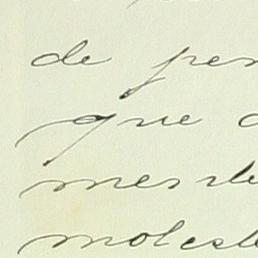 de pen
que
mente
molest